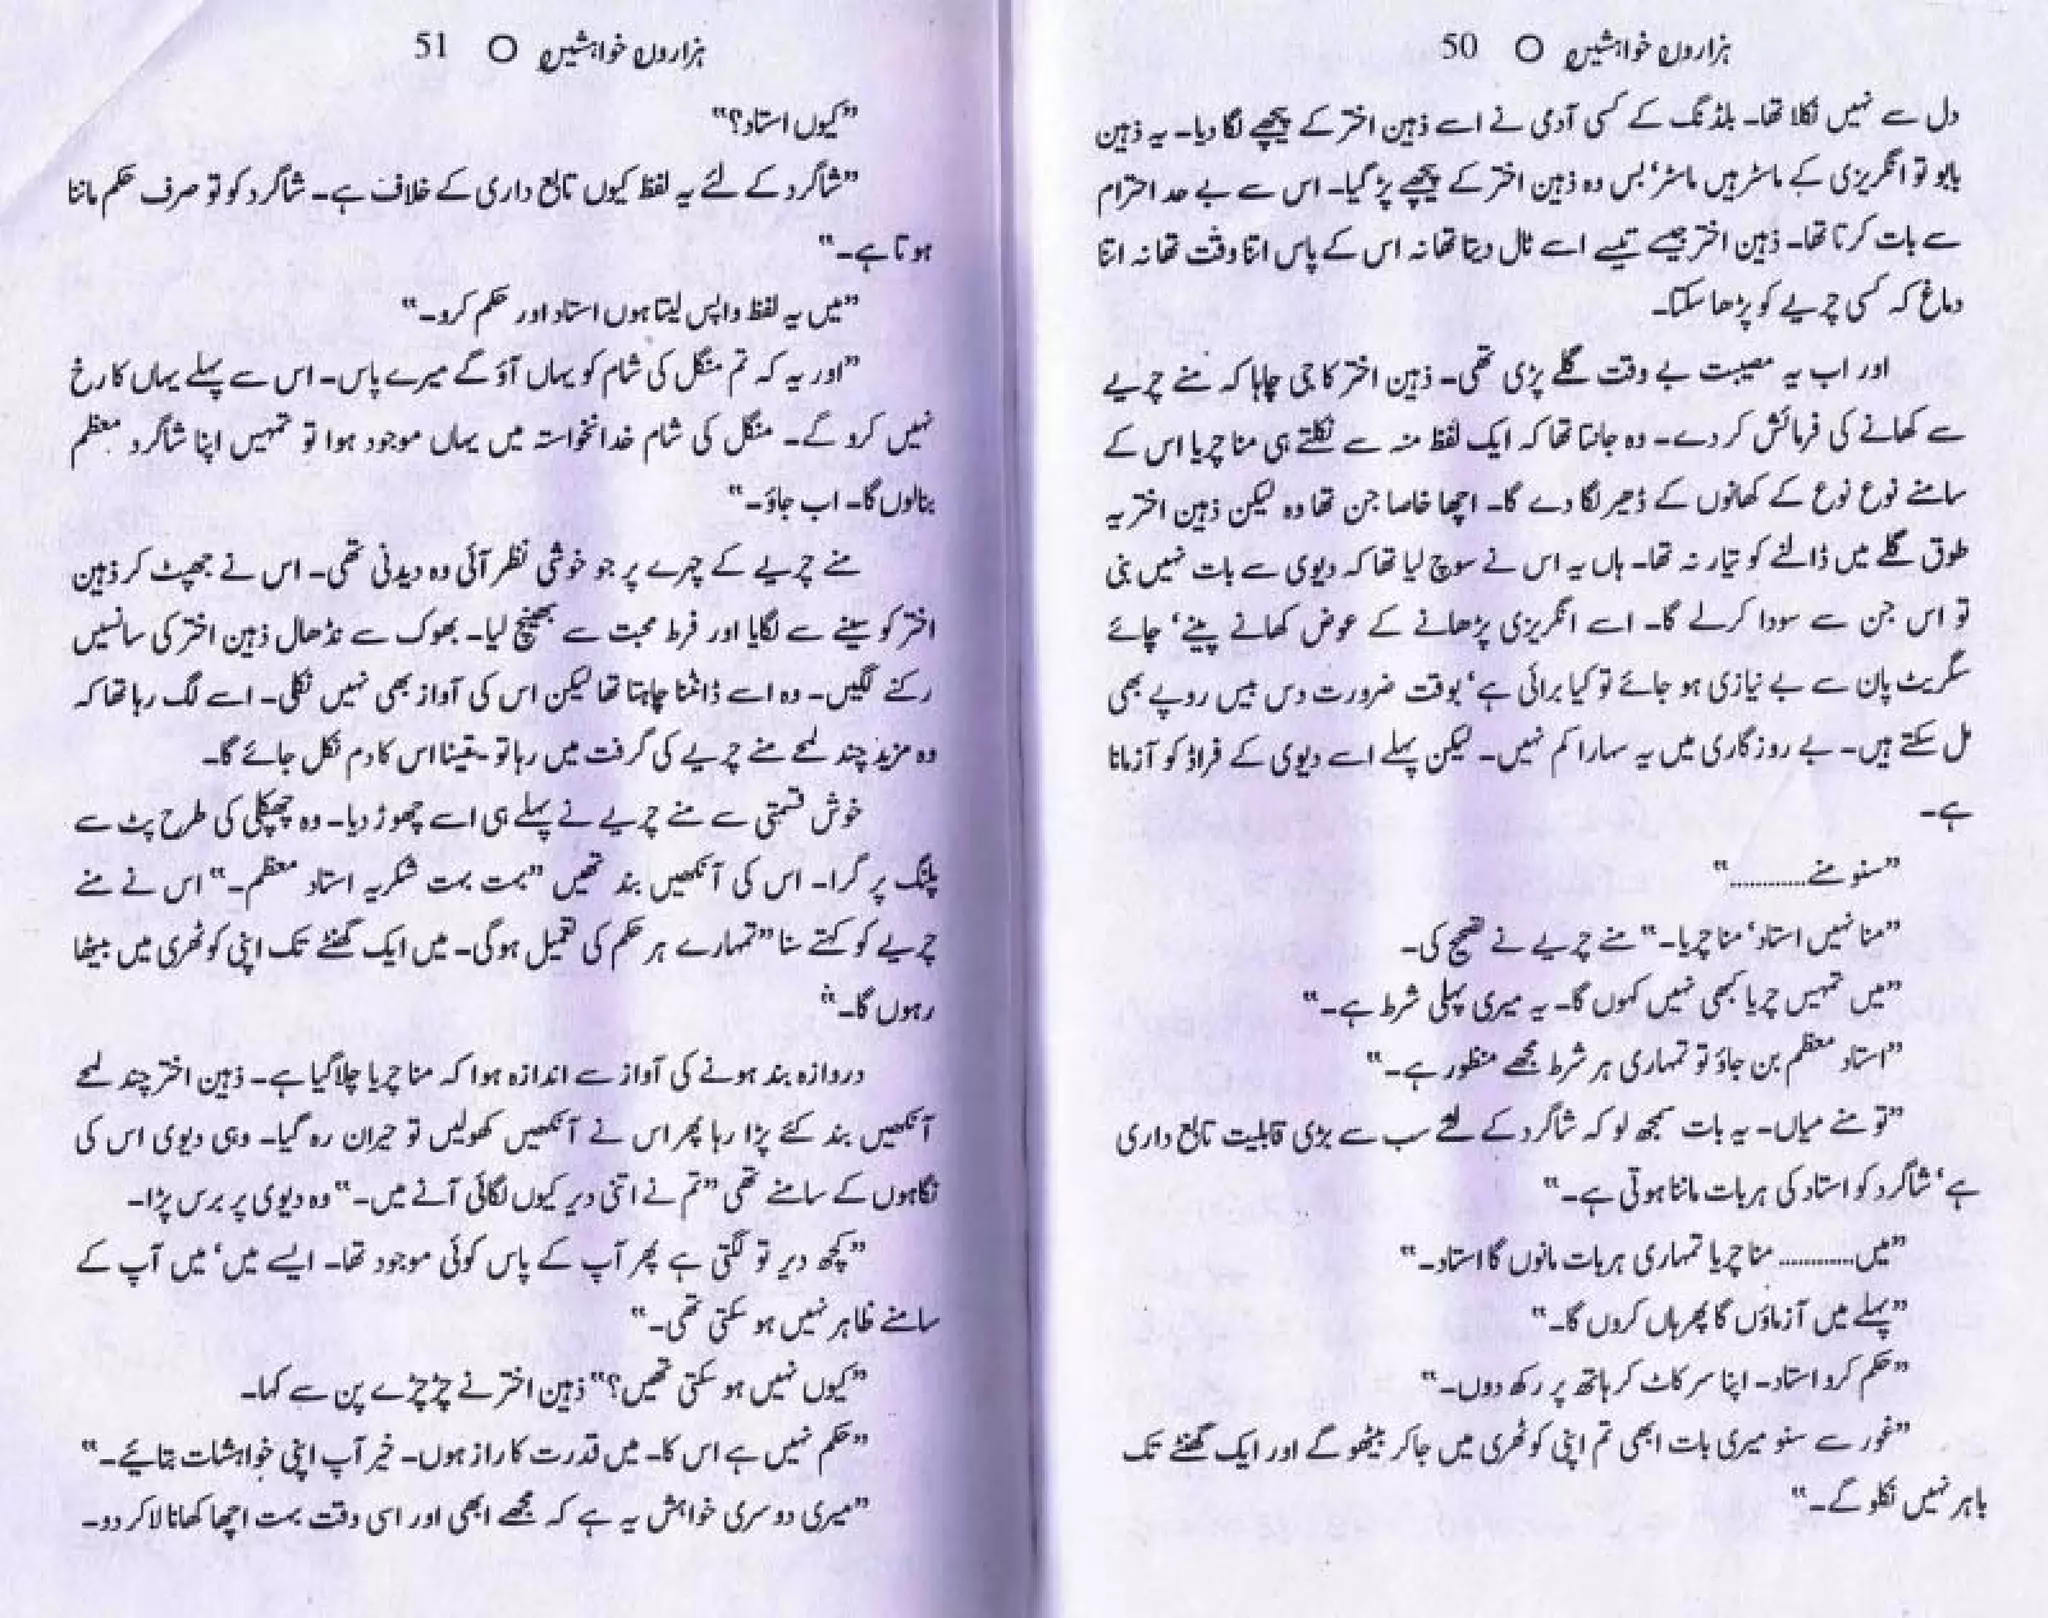 ہزاروں خواہشیں O 50
دل سے نہیں نکلا تھا۔ بلڈنگ کے کسی آدمی نے اسے ذہین اختر کے پیچھے لگا دیا۔ یہ ذہین
بابو تو انگریزی کے ماسٹر ہیں ماسٹر، بس وہ ذہین اختر کے پیچھے پڑ گیا۔ اس سے بے حد احترام
سے بات کرتا تھا۔ ذہین اختر جیسے تیسے اسے ٹال دیتا تھا نہ اس کے پاس اتنا وقت تھا نہ اتنا
دماغ کہ کسی چریے کو پڑھا سکتا۔
اور اب یہ مصیبت بے وقت گلے پڑی تھی۔ ذہین اختر کا جی چاہا کہ منے چریے
سے کھانے کی فرمائش کر دے۔ وہ جانتا تھا کہ ایک لفظ منہ سے نکلتے ہی منا چریا اس کے
سامنے نوع نوع کے کھانوں کے ڈھیر لگا دے گا۔ اچھا خاصا جن تھا وہ لیکن ذہین اختر یہ
طوق گلے میں ڈالنے کو تیار نہ تھا۔ ہاں یہ اس نے سوچ لیا تھا کہ دیوی سے بات نہیں بنی
تو اس جن سے سودا کر لے گا۔ اسے انگریزی پڑھانے کے عوض کھانے پینے، چائے
سگریٹ پان سے بے نیازی ہو جائے تو کیا برائی ہے، بوقت ضرورت دس بیس روپے بھی
مل سکتے ہیں۔ بے روزگاری میں یہ سہارا کم نہیں۔ لیکن پہلے اسے دیوی کے فراڈ کو آزمانا
ہے۔
”سنو منے............“
”منا نہیں استاد، منا چریا۔“ منے چریے نے تصحیح کی۔
”میں تمہیں چریا کبھی نہیں کہوں گا۔ یہ میری پہلی شرط ہے۔“
”استاد معظم بن جاؤ تو تمہاری ہر شرط مجھے منظور ہے۔“
”تو منے میاں۔ یہ بات سمجھ لو کہ شاگرد کے لئے سب سے بڑی قابلیت تابع داری
ہے، شاگرد کو استاد کی ہر بات ماننا ہوتی ہے۔“
”میں............ منا چریا تمہاری ہر بات مانوں گا استاد۔“
”پہلے میں آزماؤں گا پھر ہاں کروں گا۔“
”حکم کرو استاد۔ اپنا سر کاٹ کر ہاتھ پر رکھ دوں۔“
”غور سے سنو میری بات ابھی تم اپنی کوٹھری میں جا کر بیٹھو گے اور ایک گھنٹے تک
باہر نہیں نکلو گے۔“
ہزاروں خواہشیں O 51
”کیوں استاد؟“
”شاگرد کے لئے یہ لفظ کیوں تابع داری کے خلاف ہے۔ شاگرد کو تو صرف حکم ماننا
ہوتا ہے۔“
”میں یہ لفظ واپس لیتا ہوں استاد اور حکم کرو۔“
”اور یہ کہ تم منگل کی شام کو یہاں آؤ گے میرے پاس۔ اس سے پہلے یہاں کا رخ
نہیں کرو گے۔ منگل کی شام خدانخواستہ میں یہاں موجود ہوا تو تمہیں اپنا شاگرد معظم
بنا لوں گا۔ اب جاؤ۔“
منے چریے کے چہرے پر جو خوشی نظر آئی وہ دیدنی تھی۔ اس نے جھپٹ کر ذہین
اختر کو سینے سے لگایا اور فرط محبت سے بھینچ لیا۔ بھوک سے نڈھال ذہین اختر کی سانسیں
رکنے لگیں۔ وہ اسے ڈانٹنا چاہتا تھا لیکن اس کی آواز بھی نہیں نکلی۔ اسے لگ رہا تھا کہ
وہ مزید چند لمحے منے چریے کی گرفت میں رہا تو یقینا اس کا دم نکل جائے گا۔
خوش قسمتی سے منے چریے نے پہلے ہی اسے چھوڑ دیا۔ وہ چھپکلی کی طرح پٹ سے
پلنگ پر گرا۔ اس کی آنکھیں بند تھیں ”بہت بہت شکریہ استاد معظم۔“ اس نے منے
چریے کو کہتے سنا ”تمہارے ہر حکم کی تعمیل ہوگی۔ میں ایک گھنٹے تک اپنی کوٹھری میں بیٹھا
رہوں گا۔“
دروازہ بند ہونے کی آواز سے اندازہ ہوا کہ منا چریا چلا گیا ہے۔ ذہین اختر چند لمحے
آنکھیں بند کئے پڑا رہا پھر اس نے آنکھیں کھولیں تو حیران رہ گیا۔ وہی دیوی اس کی
نگاہوں کے سامنے تھی ”تم نے اتنی دیر کیوں لگائی آنے میں۔“ وہ دیوی پر برس پڑا۔
”کچھ دیر تو لگتی ہے پھر آپ کے پاس کوئی موجود تھا۔ ایسے میں، میں آپ کے
سامنے ظاہر نہیں ہو سکتی تھی۔“
”کیوں نہیں ہو سکتی تھیں؟“ ذہین اختر نے چڑچڑے پن سے کہا۔
”حکم نہیں ہے اس کا۔ میں قدرت کا راز ہوں۔ خیر آپ اپنی خواہشات بتائیے۔“
”میری دوسری خواہش یہ ہے کہ مجھے ابھی اور اسی وقت بہت اچھا کھانا لا کر دو۔